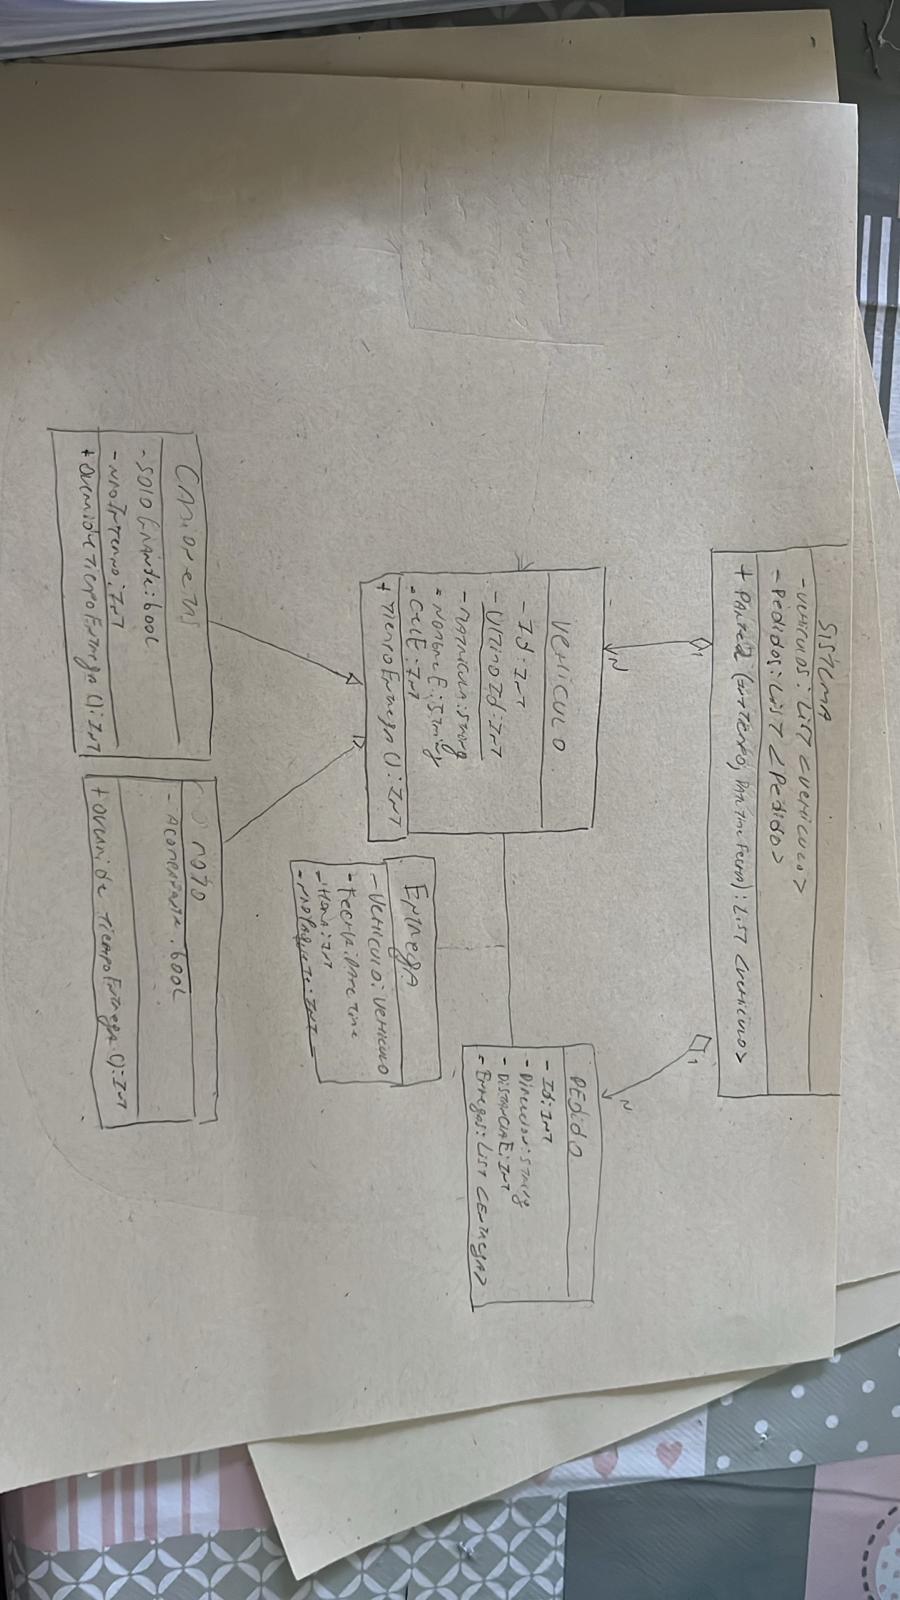 SISTEMA
- VEHICULOS: LIST <VEHICULO>
- Pedidos: LIST <Pedido>
+ PARTE2 (INT TIEMPO, DATETIME FECHA): LIST <VEHICULO>
1
1
N
N
VEHICULO
- Id: INT
- ULTIMO Id: INT
- MATRICULA: STRING
- NOMBRE E: STRING
- CELE: INT
+ TIEMPO ENTREGA (): INT
PEDIDO
- Id: INT
- DIRECCION: STRING
- DISTANCIA E: INT
- ENTREGAS: LIST <ENTREGA>
ENTREGA
- VEHICULO: VEHICULO
- FECHA: DATE TIME
- HORA: INT
- NRO PAQUETE: INT
CAMIONETAS
- SOLO GRANDE: bool
- NRO INTERNO: INT
+ OVERRIDE TIEMPO ENTREGA (): INT
MOTO
- ACOMPAÑANTE: bool
+ OVERRIDE TIEMPO ENTREGA (): INT